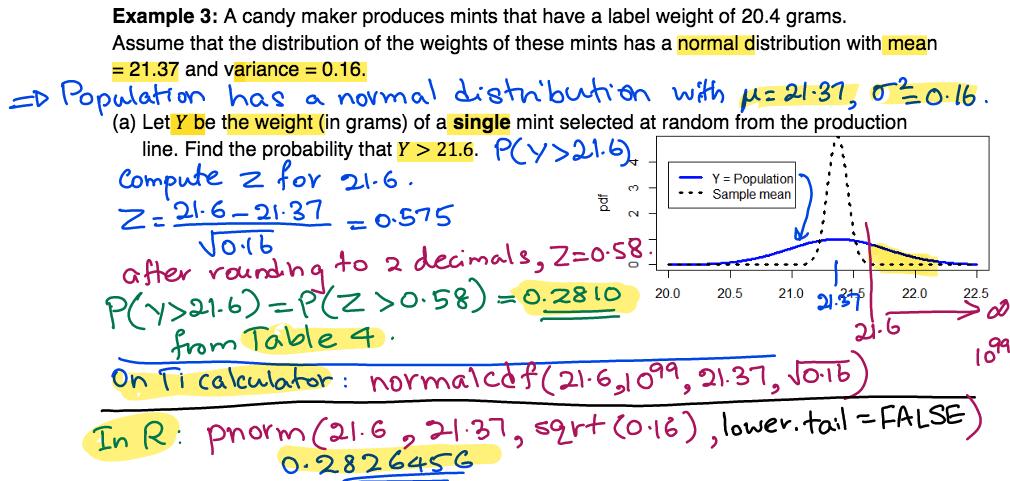 Example 3: A candy maker produces mints that have a label weight of 20.4 grams.
Assume that the distribution of the weights of these mints has a normal distribution with mean
= 21.37 and variance = 0.16.
⇒ Population has a normal distribution with μ = 21.37, σ² = 0.16.
(a) Let Y be the weight (in grams) of a single mint selected at random from the production
line. Find the probability that Y > 21.6. P(Y>21.6)
Compute Z for 21.6.
Z = (21.6 - 21.37)/√0.16 = 0.575
after rounding to 2 decimals, Z=0.58.
P(Y>21.6) = P(Z >0.58) = 0.2810
from Table 4.
pdf
0 2 3 4
Y = Population
Sample mean
20.0 20.5 21.0 21.5 22.0 22.5
21.37
21.6
∞
10⁹⁹
On Ti calculator: normalcdf(21.6,10⁹⁹, 21.37, √0.16)
In R: pnorm(21.6, 21.37, sqrt(0.16), lower.tail = FALSE)
0.2826456